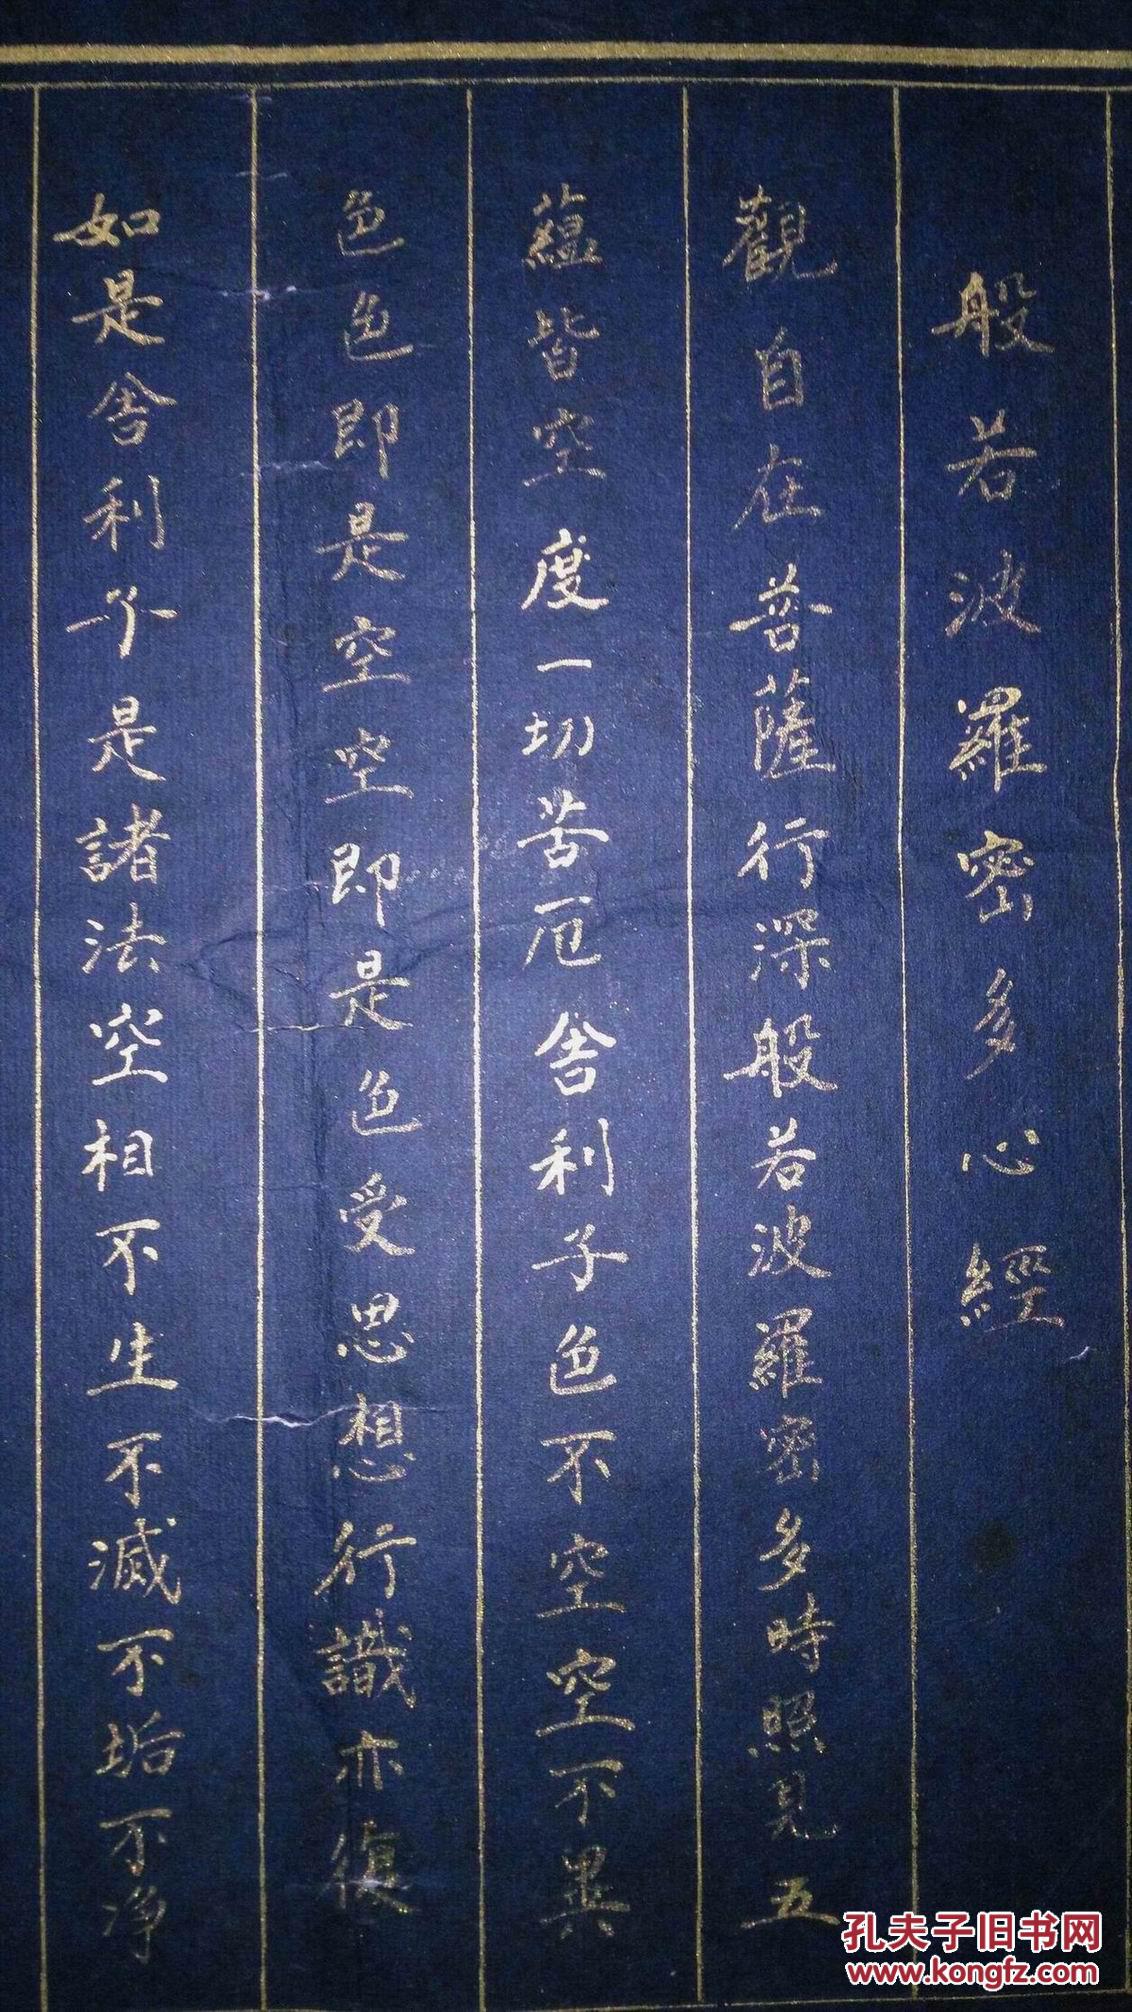 般若波羅密多心經
觀自在菩薩行深般若波羅密多時照見五
蘊皆空度一切苦厄舍利子色不空空不異
色色即是空空即是色受思想行識亦復
如是舍利子是諸法空相不生不滅不垢不淨
孔夫子旧书网
www.kongfz.com